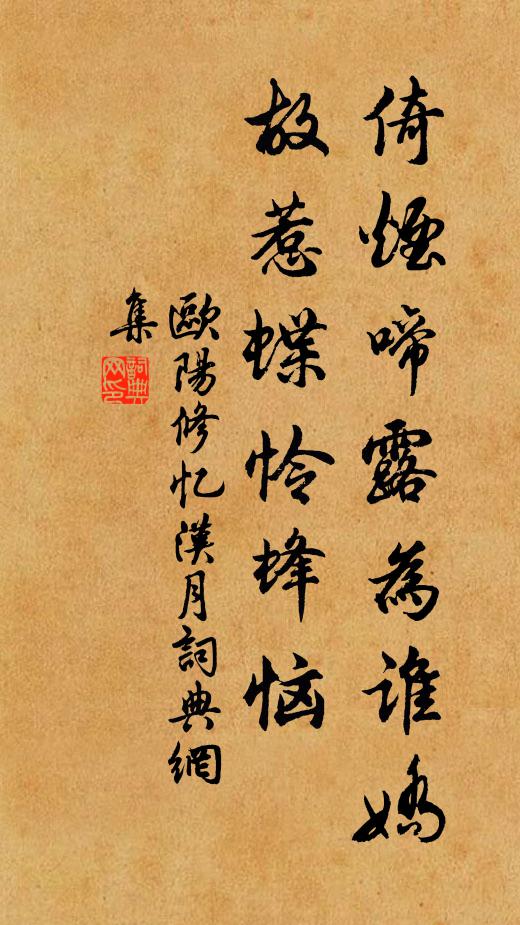 倚煙啼露為誰嬌
故惹蝶怜蜂恼
歐陽修忆漢月詞典網
集
詞典
网印